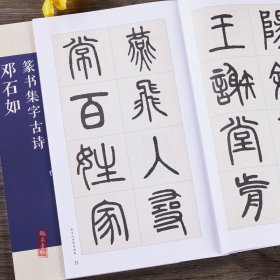 王謝堂前
燕飛入尋
常百姓家
21
篆书集字古诗
邓石如